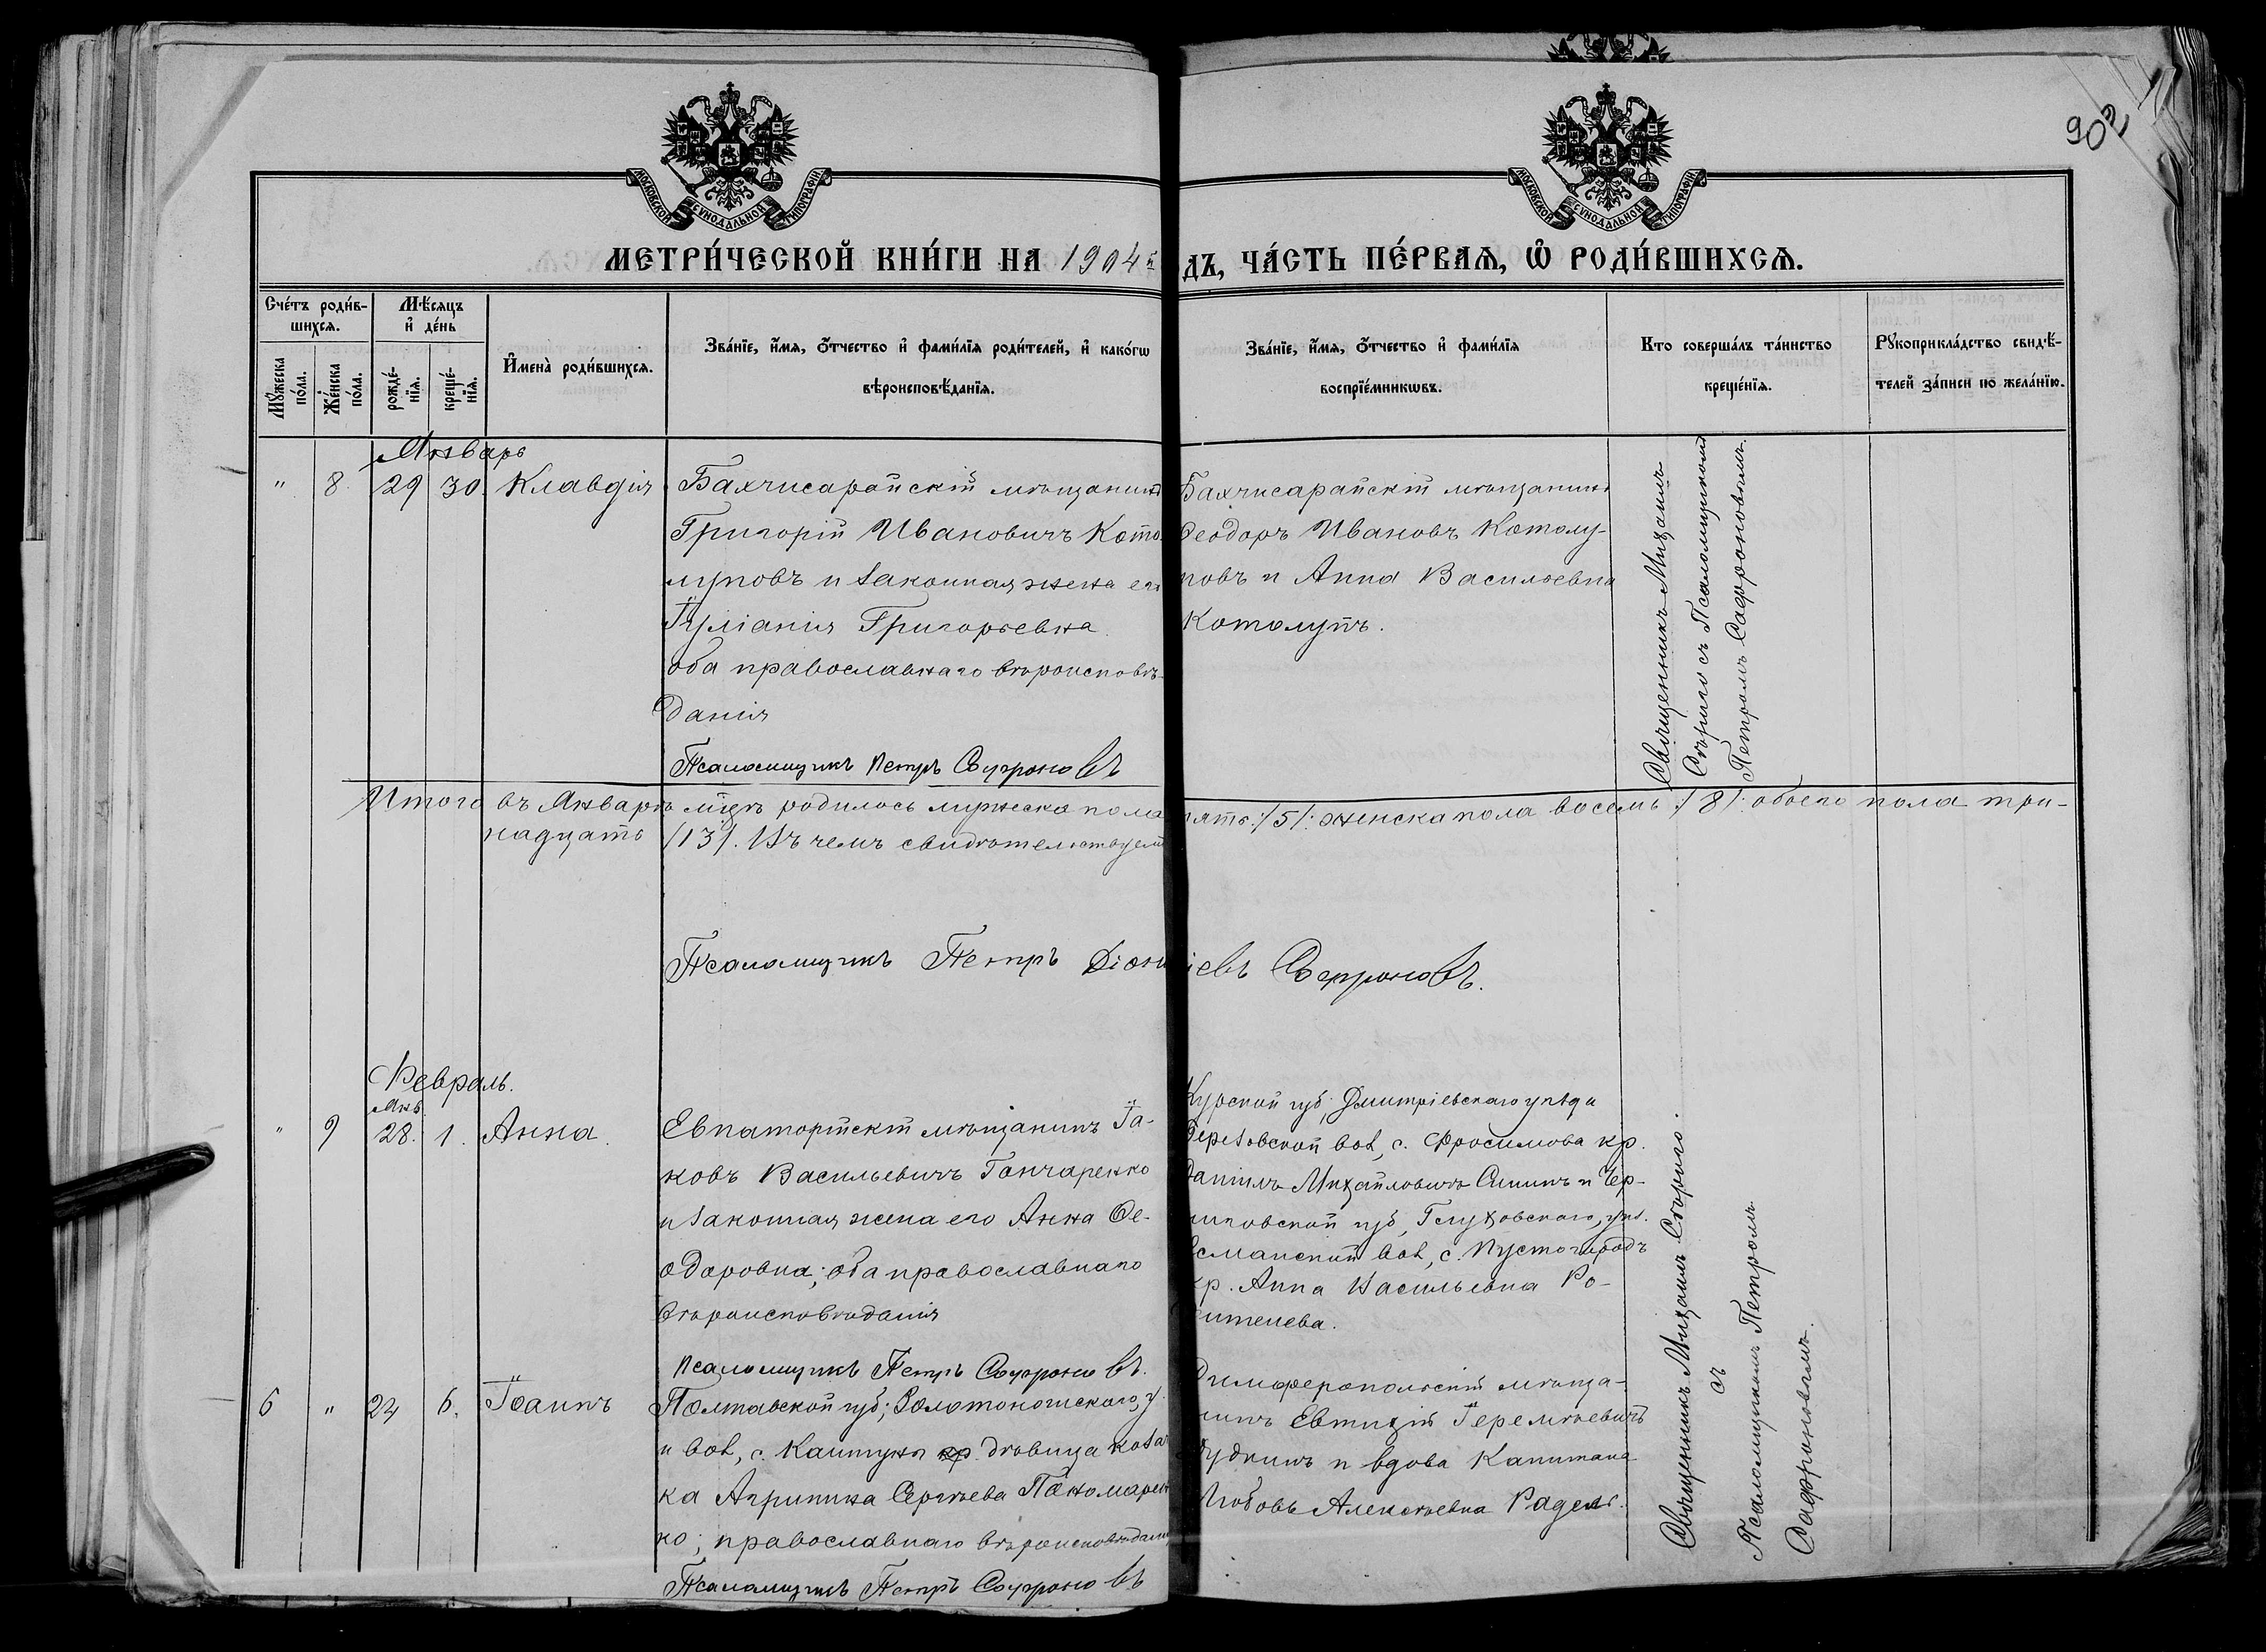 902
МОСКОВСКОЙ СѴНОДАЛЬНОЙ ТИПОГРАФІИ
МОСКОВСКОЙ СѴНОДАЛЬНОЙ ТИПОГРАФІИ
МЕТРИ́ЧЕСКОЙ КНИ́ГИ НА 1904 й
ДЪ, ЧА́СТЬ ПЕ́РВАѦ, Ѽ РОДИ́ВШИХСѦ.
Сче́тъ роди́в-
шихсѧ.
Мѣ́сѧцъ
и҆ де́нь
Мꙋ́жеска
по́ла.
Же́нска
по́ла.
рожде́-
нїѧ.
креще́-
нїѧ.
И҆мена̀ роди́вшихсѧ.
Зва́нїе, и҆́мѧ, ѻ҆́тчество и҆ фами́лїѧ роди́телей, и҆ како́гѡ
вѣроисповѣ́данїѧ.
Зва́нїе, и҆́мѧ, ѻ҆́тчество и҆ фами́лїѧ
воспрїе́мникѡвъ.
Кто соверша́лъ та́инство
креще́нїѧ.
Рꙋкоприкла́дство свидѣ́-
телей за́писи по жела́нїю.
Январь
" 8 29 30. Клавдія
Бахчисарайскій мѣщанинъ
Григорій Ивановичъ Кото-
луповъ и законная жена его
Іуліанія Григорьевна
оба православнаго вѣроисповѣ-
данія
Псаломщикъ Петръ Софроновъ
Бахчисарайскій мѣщанинъ
Ѳеодоръ Ивановъ Котолу-
повъ и Анна Васильевна
Котолупъ.
Священникъ Михаилъ
Сторого съ Псаломщикомъ
Петромъ Сафроновымъ
Итого въ Январѣ мцѣ родилось мужеска пола пять /5/: женска пола восемь /8/: обоего пола три-
надцать /13/. Въ чемъ свидѣтельствуемъ
Псаломщикъ Петръ Діони іевъ Софроновъ.
Февраль.
Янв.
" 9 28. 1. Анна.
Евпаторійскій мѣщанинъ Іа-
ковъ Васильевичъ Гончаренко
и законная жена его Анна Ѳе-
одоровна; оба православнаго
вѣроисповѣданія
Псаломщикъ Петръ Софроновъ.
Курской губ; Дмитріевскаго уѣзда
Березовской вол, с. Фросимова кр.
Даніилъ Михайловичъ и Чер-
ниговской губ, Глуховскаго, уѣз.
Эсманской вол, с. Пустогородъ
кр. Анна Васильевна Ро-
6 " 24 6. Іоаннъ
Полтавской губ; Золотоношскаго, у.
и вол, с. кр. дѣвица козач
ка Агрипина Сергѣева Пономарен
ко; православнаго вѣроисповѣдані
Псаломщикъ Петръ Софроновъ
Симферопольскій мѣща-
нинъ Евтихій Іеремѣевичъ
и вдова Капитана
Любовь Алексѣевна
Священникъ Михаилъ Сторого.
съ
Псаломщикомъ Петромъ
Сафроновымъ.